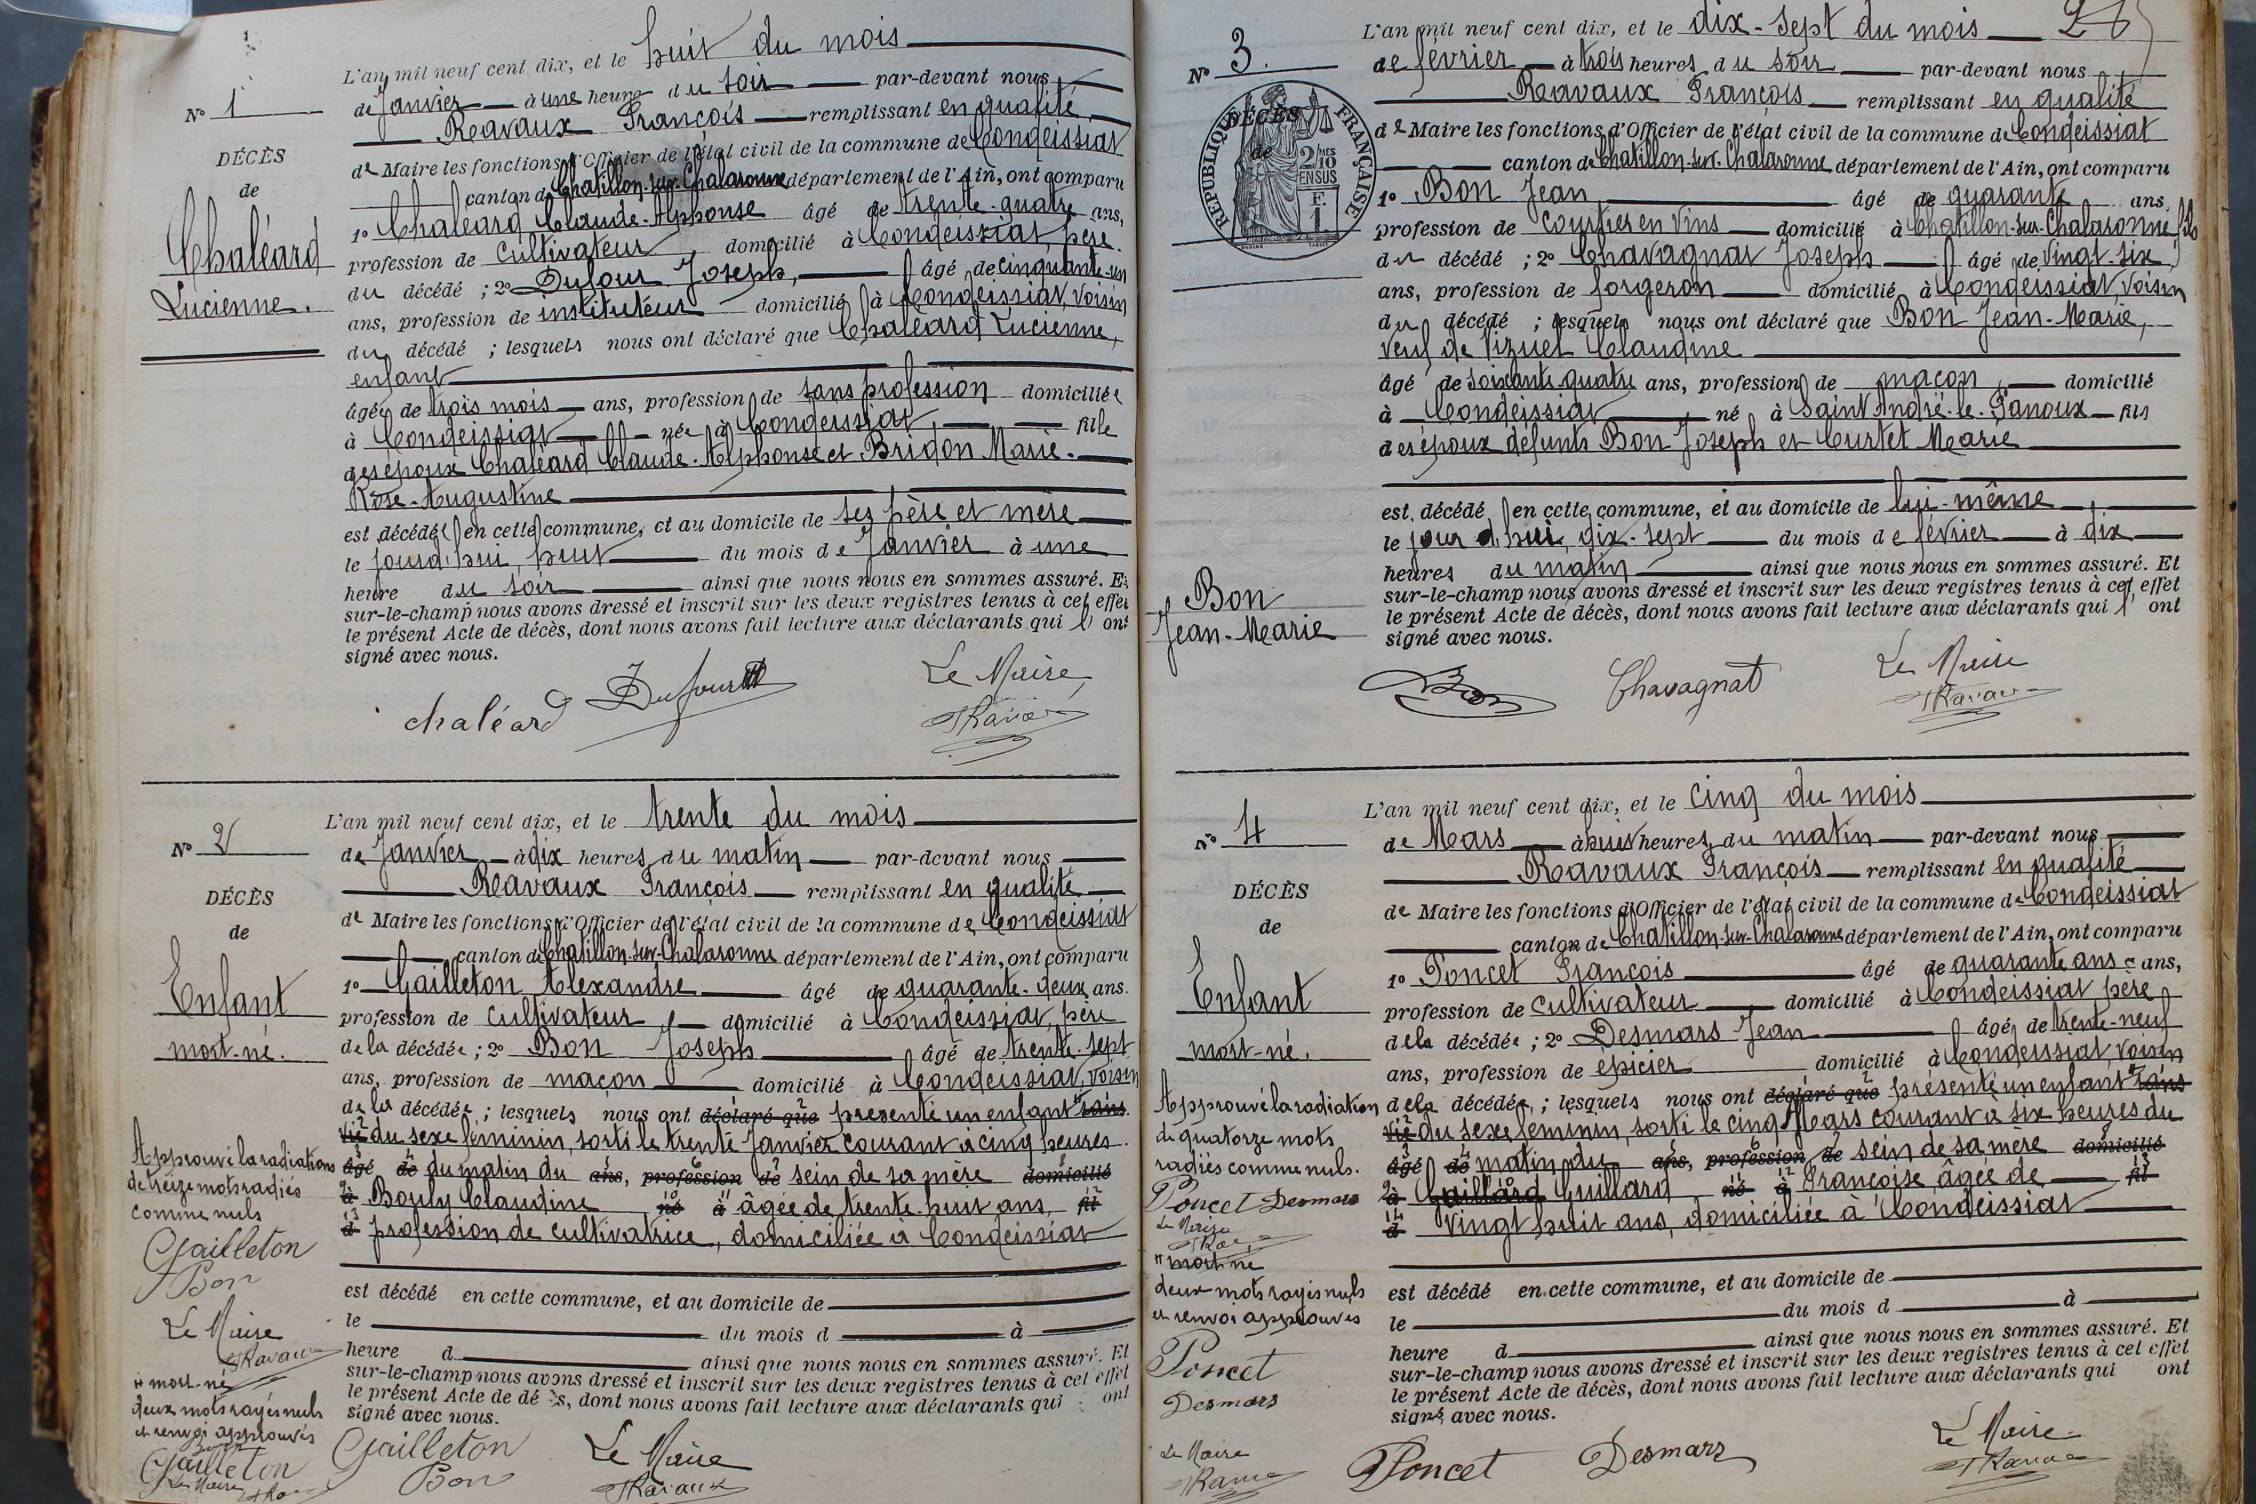 L'an mil neuf cent dix, et le huit du mois
de Janvier à une heure du soir par-devant nous
Ravaux François remplissant en qualité
de Maire les fonctions d'Officier de l'état civil de la commune de Condeissiat
canton de Chatillon-sur-Chalaronne département de l'Ain, ont comparu
1º Chaléard Claude-Alphonse âgé de trente-quatre ans,
profession de cultivateur domicilié à Condeissiat, père
du décédé ; 2º Dufour Joseph, âgé de cinquante-un
ans, profession de instituteur domicilié à Condeissiat, voisin
du décédé ; lesquels nous ont déclaré que Chaléard Lucienne,
enfant
âgée de trois mois ans, profession de sans profession domiciliée
à Condeissiat née à Condeissiat, fille
des époux Chaléard Claude-Alphonse et Bridon Marie-
Rose-Augustine
est décédée en cette commune, et au domicile de ses père et mère
le jourd'hui huit du mois de Janvier à une
heure du soir ainsi que nous nous en sommes assuré. Et
sur-le-champ nous avons dressé et inscrit sur les deux registres tenus à cet effet
le présent Acte de décès, dont nous avons fait lecture aux déclarants qui l'ont
signé avec nous.
Nº 1
DÉCÈS
de
Chaléard
Lucienne.
chaléard Dufour Le Maire,
FRavaux
L'an mil neuf cent dix, et le trente du mois
de Janvier à dix heures du matin par-devant nous
Ravaux François remplissant en qualité
de Maire les fonctions d'Officier de l'état civil de la commune de Condeissiat
canton de Chatillon-sur-Chalaronne département de l'Ain, ont comparu
1º Gailleton Alexandre âgé de quarante-deux ans.
profession de cultivateur domicilié à Condeissiat, père
de la décédée ; 2º Bon Joseph âgé de trente-sept
ans, profession de maçon domicilié à Condeissiat, voisin
de la décédée ; lesquels nous ont déclaré que présenté un enfant " sans
vie du sexe féminin, sorti le trente Janvier courant à cinq heures
âgé de du matin du ans, profession de sein de sa mère domicilié
à Bouly Claudine né à âgée de trente-huit ans, fil
d profession de cultivatrice, domiciliée à Condeissiat
est décédé en cette commune, et au domicile de
le du mois d à
heure d ainsi que nous nous en sommes assuré. Et
sur-le-champ nous avons dressé et inscrit sur les deux registres tenus à cet effet
le présent Acte de décès, dont nous avons fait lecture aux déclarants qui ont
signé avec nous.
Nº 2
DÉCÈS
de
Enfant
mort-né.
Approuvé la radiation
de treize mots radiés
comme nuls
Gailleton
Bon
Le Maire
FRavaux
" mort-né
deux mots rayés nuls
et renvoi approuvés
Gailleton
Le Maire
Gailleton Le Maire
Bon FRavaux
L'an mil neuf cent dix, et le dix-sept du mois
de février à trois heures du soir par-devant nous
Ravaux François remplissant en qualité
de Maire les fonctions d'Officier de l'état civil de la commune de Condeissiat
canton de Chatillon-sur-Chalaronne département de l'Ain, ont comparu
1º Bon Jean âgé de quarante ans,
profession de courtier en vins domicilié à Chatillon-sur-Chalaronne, fils
du décédé ; 2º Chavagnat Joseph âgé de vingt-six
ans, profession de forgeron domicilié à Condeissiat, voisin
du décédé ; lesquels nous ont déclaré que Bon Jean-Marie,
veuf de Vizuet Claudine
âgé de soixante-quatre ans, profession de maçon domicilié
à Condeissiat né à Saint-André-le-Panoux fils
des époux défunts Bon Joseph et Curtet Marie
est décédé en cette commune, et au domicile de lui-même
le jour d'hui, dix-sept du mois de février à dix
heures du matin ainsi que nous nous en sommes assuré. Et
sur-le-champ nous avons dressé et inscrit sur les deux registres tenus à cet effet
le présent Acte de décès, dont nous avons fait lecture aux déclarants qui l'ont
signé avec nous.
Nº 3.
DÉCÈS
de
RÉPUBLIQUE FRANÇAISE
2/10MES
EN SUS
F.
1
Bon
Jean-Marie
Bon Chavagnat Le Maire
FRavaux
L'an mil neuf cent dix, et le cinq du mois
de Mars à huit heures du matin par-devant nous
Ravaux François remplissant en qualité
de Maire les fonctions d'Officier de l'état civil de la commune de Condeissiat
canton de Chatillon-sur-Chalaronne département de l'Ain, ont comparu
1º Poncet François âgé de quarante ans = ans,
profession de cultivateur domicilié à Condeissiat père
de la décédée ; 2º Desmars Jean âgé de trente-neuf
ans, profession de épicier domicilié à Condeissiat, voisin
de la décédée ; lesquels nous ont déclaré que présenté un enfant " sans
vie du sexe féminin, sorti le cinq Mars courant à six heures du
âgé de matin du ans, profession de sein de sa mère domicilié
à Gaillard Guillard né à Françoise âgée de fil
d vingt huit ans, domiciliée à Condeissiat
est décédé en cette commune, et au domicile de
le du mois d à
heure d ainsi que nous nous en sommes assuré. Et
sur-le-champ nous avons dressé et inscrit sur les deux registres tenus à cet effet
le présent Acte de décès, dont nous avons fait lecture aux déclarants qui ont
signé avec nous.
Nº 4
DÉCÈS
de
Enfant
mort-né.
Approuvé la radiation
de quatorze mots
radiés comme nuls.
Poncet Desmars
Le Maire
" mort-né
deux mots rayés nuls
et renvoi approuvés
Poncet
Desmars
Le Maire
FRavaux
Poncet Desmars Le Maire
FRavaux